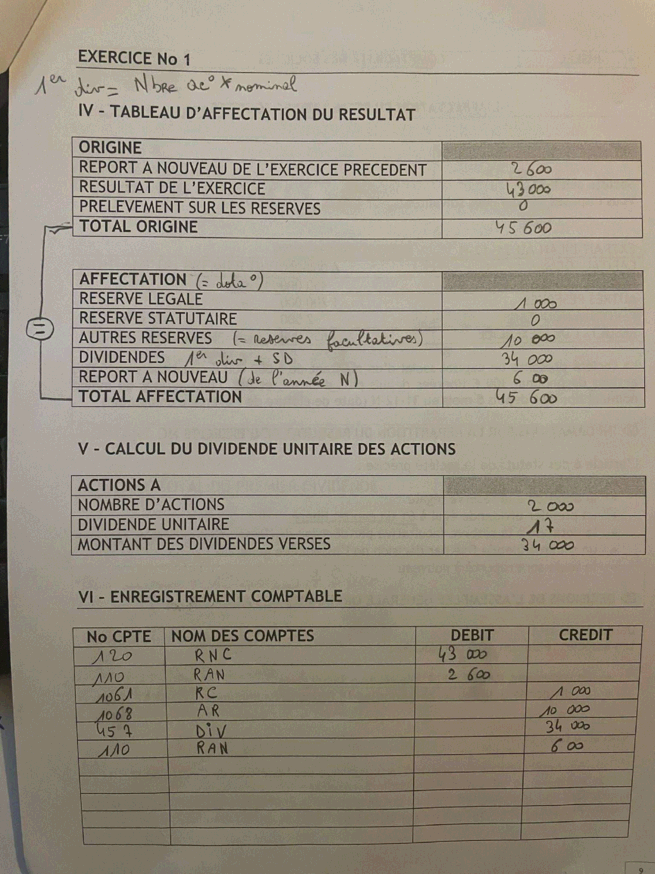 EXERCICE No 1
1er div = Nbre ac° * nominal
IV - TABLEAU D'AFFECTATION DU RESULTAT
ORIGINE
REPORT A NOUVEAU DE L'EXERCICE PRECEDENT 2 600
RESULTAT DE L'EXERCICE 43 000
PRELEVEMENT SUR LES RESERVES 0
TOTAL ORIGINE 45 600
AFFECTATION (= dota°)
RESERVE LEGALE 1 000
RESERVE STATUTAIRE 0
=
AUTRES RESERVES (= reserves facultatives) 10 000
DIVIDENDES 1er div + SD 34 000
REPORT A NOUVEAU (de l'année N) 6 00
TOTAL AFFECTATION 45 600
V - CALCUL DU DIVIDENDE UNITAIRE DES ACTIONS
ACTIONS A
NOMBRE D'ACTIONS 2 000
DIVIDENDE UNITAIRE 17
MONTANT DES DIVIDENDES VERSES 34 000
VI - ENREGISTREMENT COMPTABLE
No CPTE NOM DES COMPTES DEBIT CREDIT
120 RNC 43 000
110 RAN 2 600
1061 RC 1 000
1068 AR 10 000
457 DIV 34 000
110 RAN 6 00
9